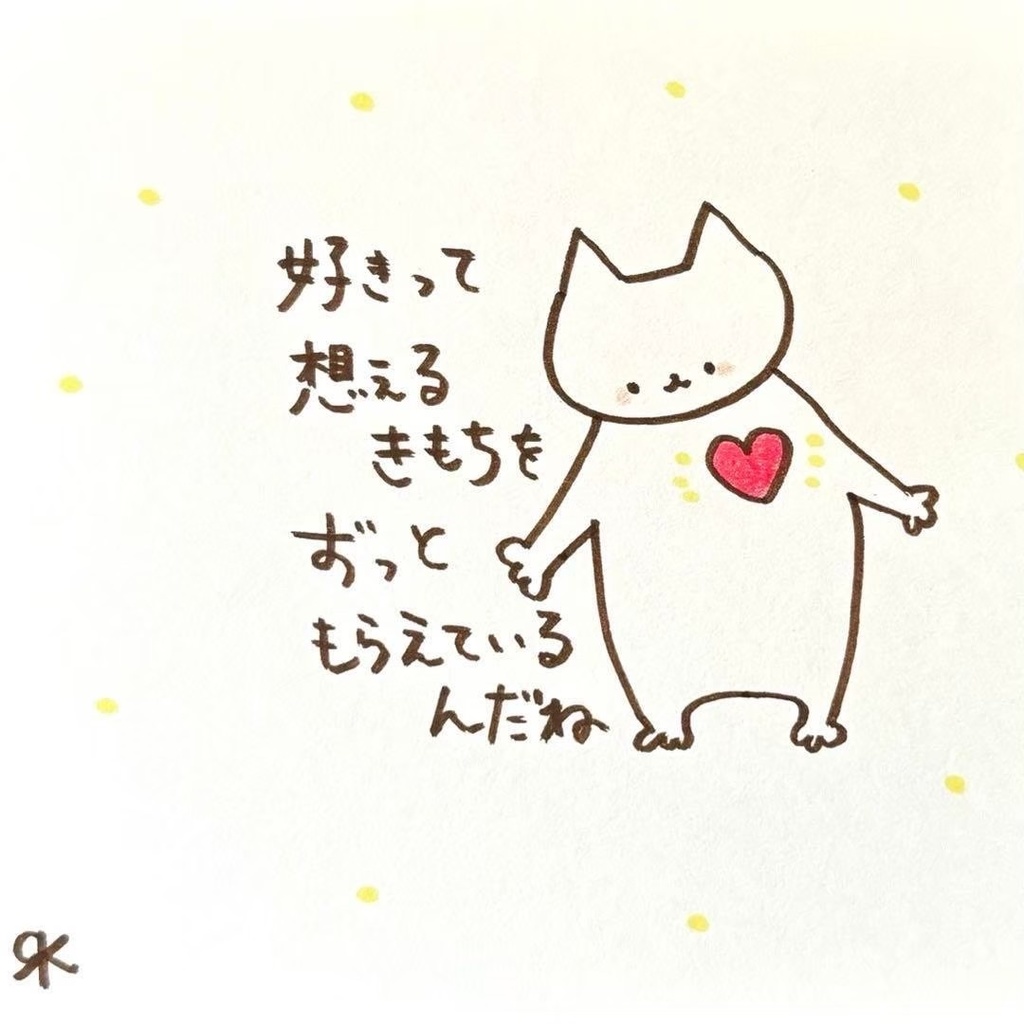 好きって
想える
きもちを
ずっと
もらえている
んだね